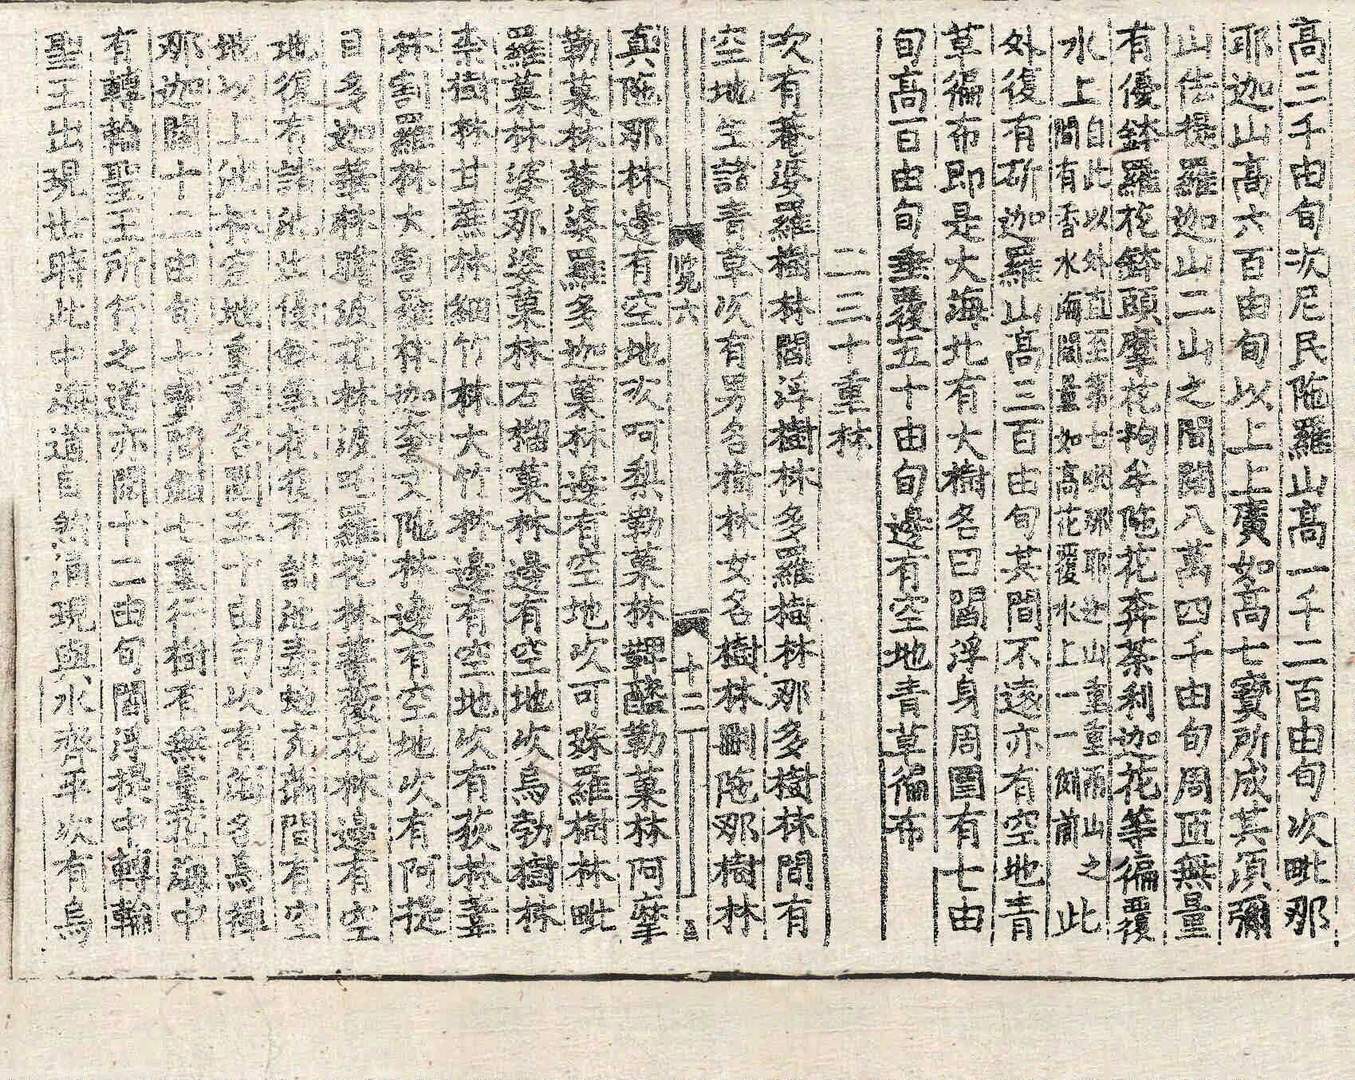 高三千由旬次尼民陁羅山高一千二百由旬次毗那
耶迦山高六百由旬以上上廣如高七寶所成其頂彌
山佉提羅迦山二山之間闊八萬四千由旬周匝無量
有優鉢羅花鉢頭摩花拘牟陁花奔荼利迦花等徧覆
水上自此以外直至第七毗那耶迦山重重兩山之間有香水海闊量如高花覆水上一一倒前此
外復有斫迦羅山高三百由旬其間不遠亦有空地青
草徧布即是大海北有大樹名曰閻浮身周圍有七由
旬高百由旬垂覆五十由旬邊有空地青草徧布
二三十重林
次有菴婆羅樹林閻浮樹林多羅樹林那多樹林間有
空地生諸青草次有男名樹林女名樹林刪陁那樹林
覽六 十二
真陁那林邊有空地次呵梨勒菓林鞞醯勒菓林阿摩
勒菓林菴婆羅多迦菓林邊有空地次可殊羅樹林毗
羅菓林婆那婆菓林石榴菓林邊有空地次烏勃樹林
柰樹林甘蔗林細竹林大竹林邊有空地次有荻林葦
林割羅林大割羅林迦奢文陁林邊有空地次有阿提
目多迦華林瞻波花林波吒羅花林薔薇花林邊有空
地復有諸池優鉢等花復有諸池毒蛇充滿間有空
地以上池林空地重重各闊五十由旬次有海名烏禪
那迦闊十二由旬七寶間錯七重行樹有無量花海中
有轉輪聖王所行之道亦闊十二由旬閻浮提中轉輪
聖王出現世時此中海道自然涌現與水齊平次有烏